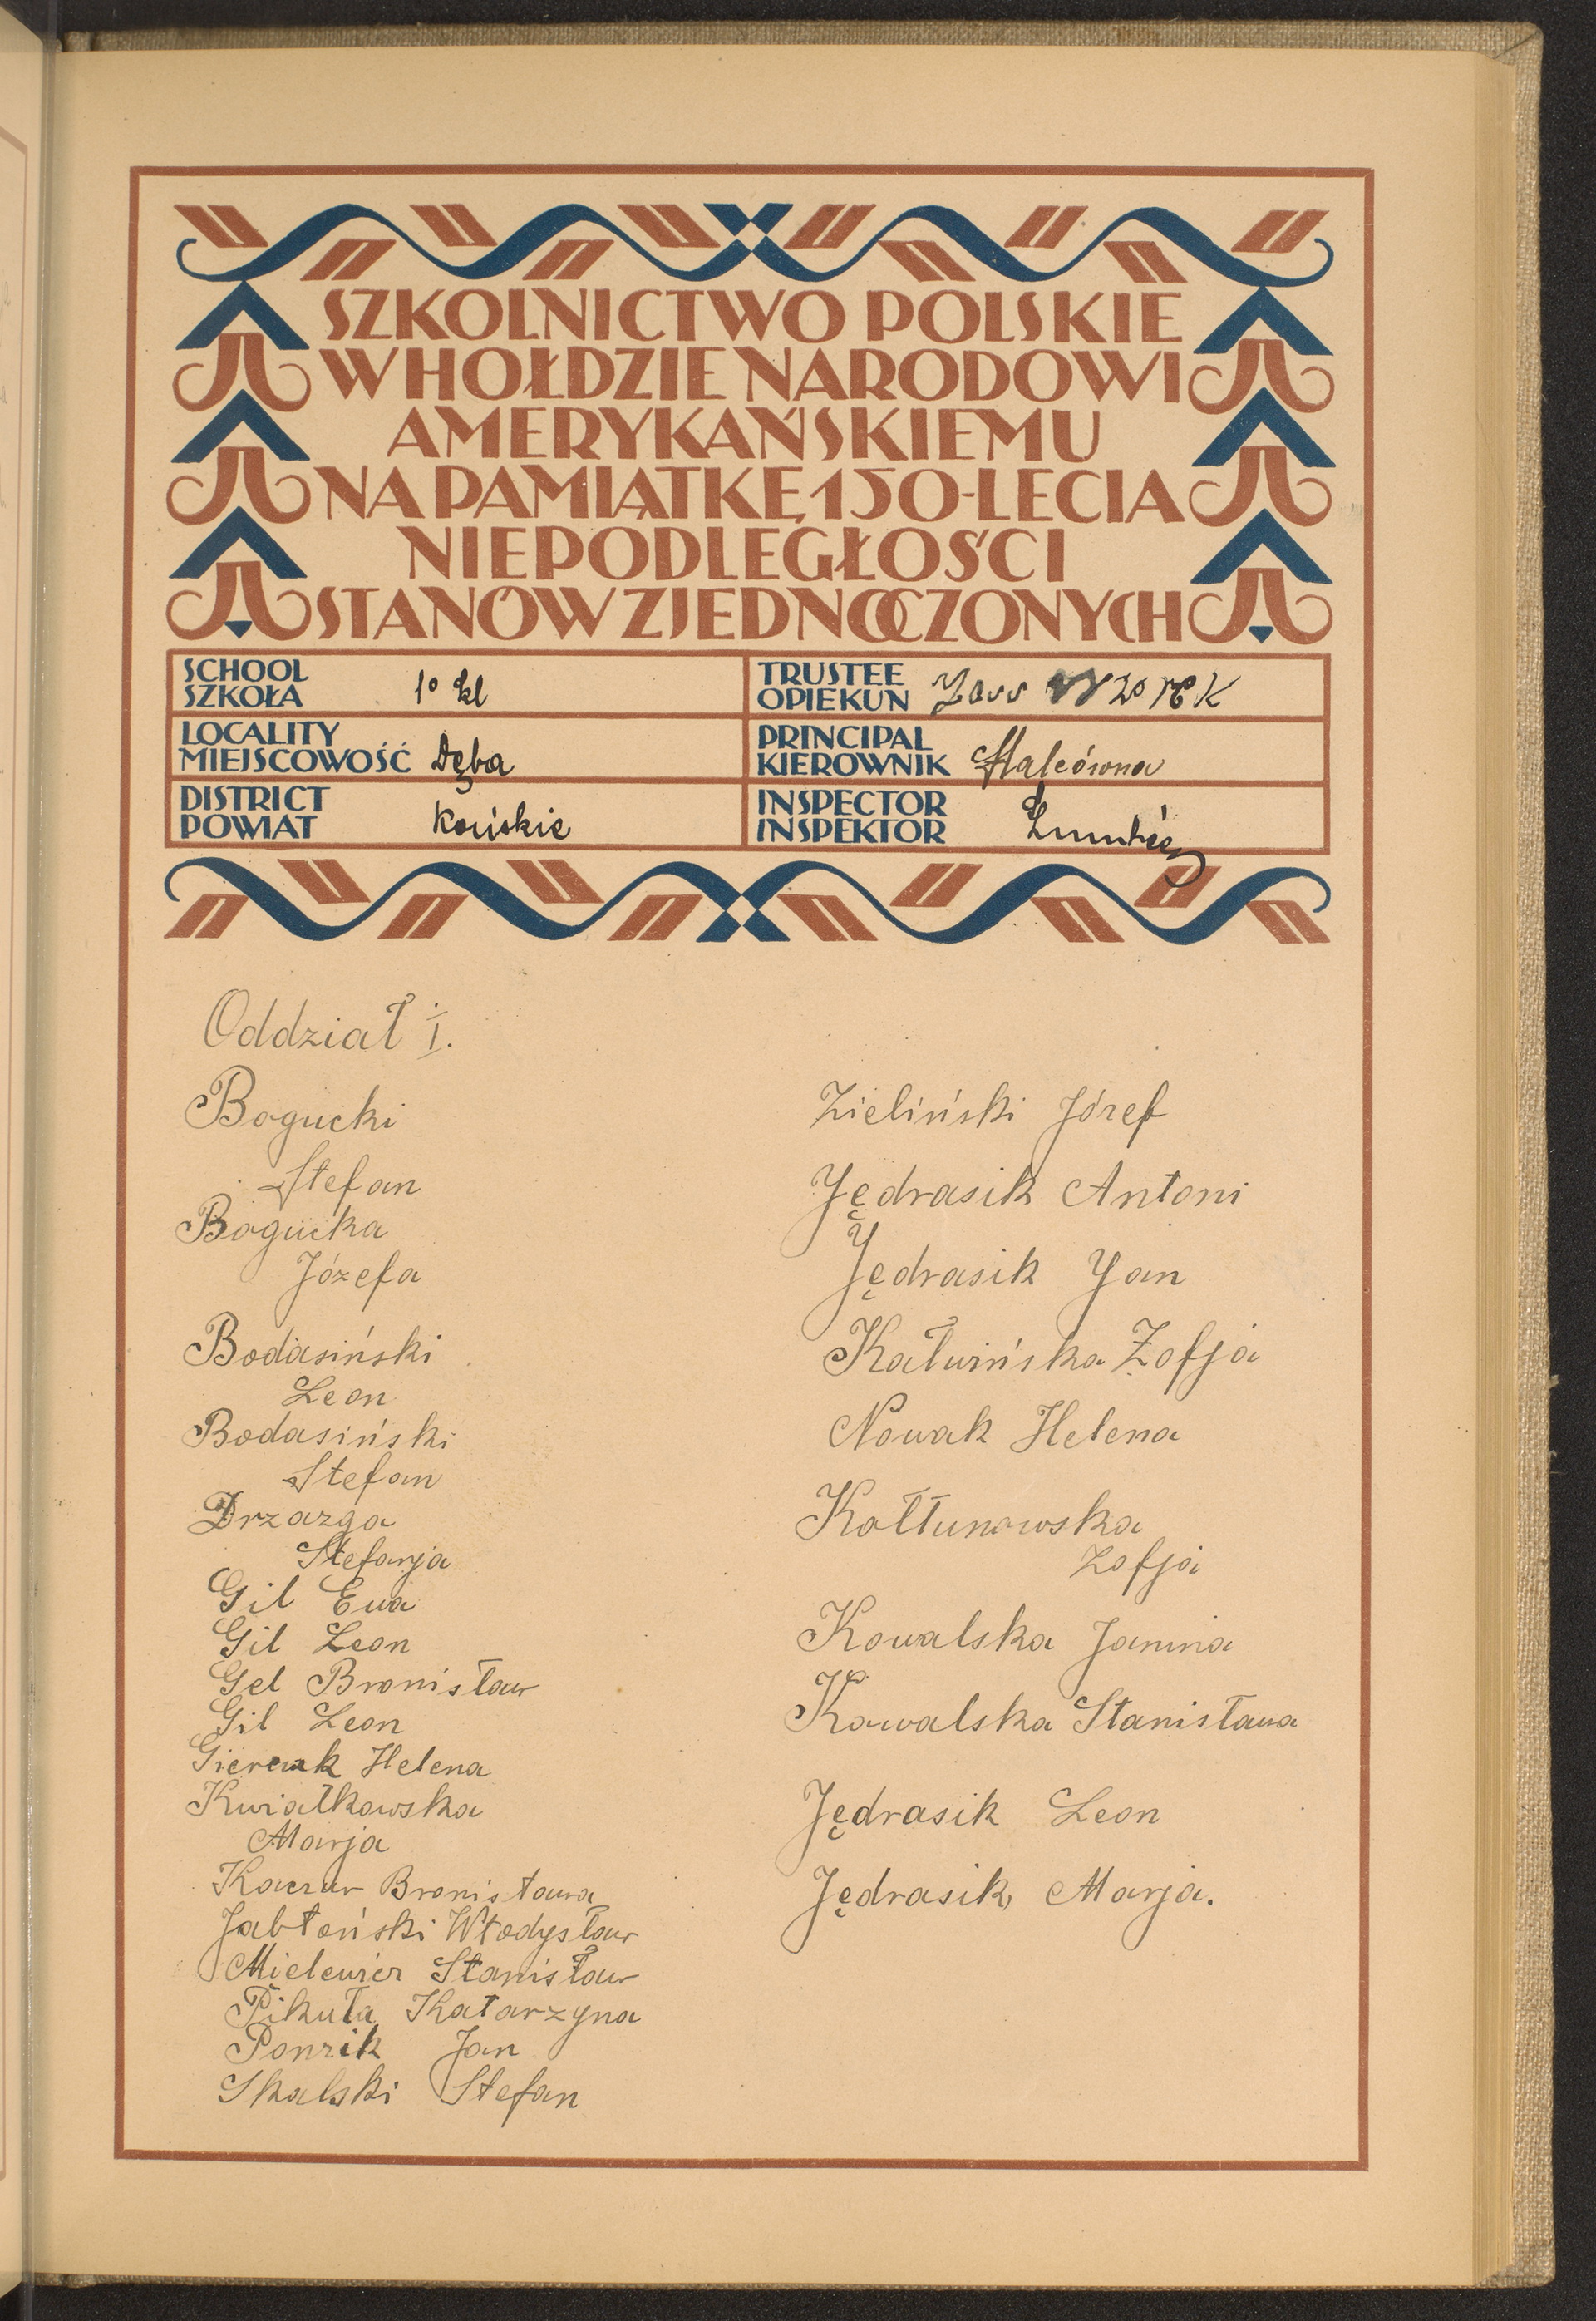 SZKOLNICTWO POLSKIE
W HOŁDZIE NARODOWI
AMERYKAŃSKIEMU
NA PAMIĄTKĘ 150-LECIA
NIEPODLEGŁOŚCI
STANÓW ZJEDNOCZONYCH
SCHOOL
SZKOŁA 1º kl
LOCALITY
MIEJSCOWOŚĆ Dęba
DISTRICT
POWIAT Końskie
TRUSTEE
OPIEKUN
PRINCIPAL
KIEROWNIK
INSPECTOR
INSPEKTOR
Oddział I.
Bogucki
Stefan
Bogucka
Józefa
Bodasiński
Leon
Bodasiński
Stefan
Drzazga
Stefanja
Gil Ewa
Gil Leon
Gel Bronisław
Gil Leon
Helena
Kwiatkowska
Marja
Kaczur Bronisława
Jabłoński Włodysław
Mielewicz Stanisław
Pikuła Katarzyna
Ponzik Jan
Skalski Stefan
Zieliński Józef
Jędrasik Antoni
Jędrasik Yan
Kałwińska Zofja
Nowak Helena
Kołtunowska
Zofja
Kowalska Janina
Kowalska Stanisława
Jędrasik Leon
Jędrasik Marja.